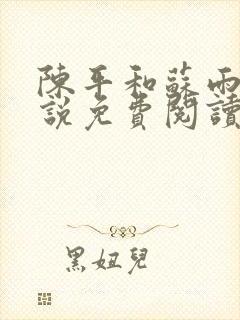 陳平和蘇雨
說免費閱讀
黑妞兒